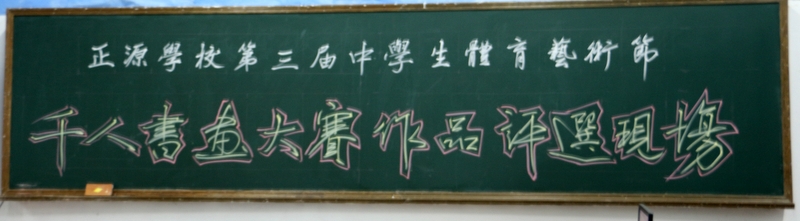 正源學校第三届中學生體育藝術節
千人書画大賽作品评選現場